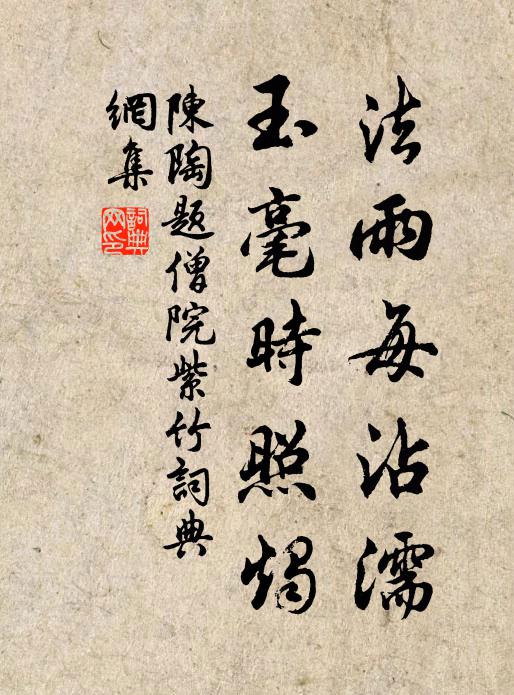 法雨每沾濡
玉毫時照燭
陳陶題僧院紫竹詞典
網集
詞典
网印